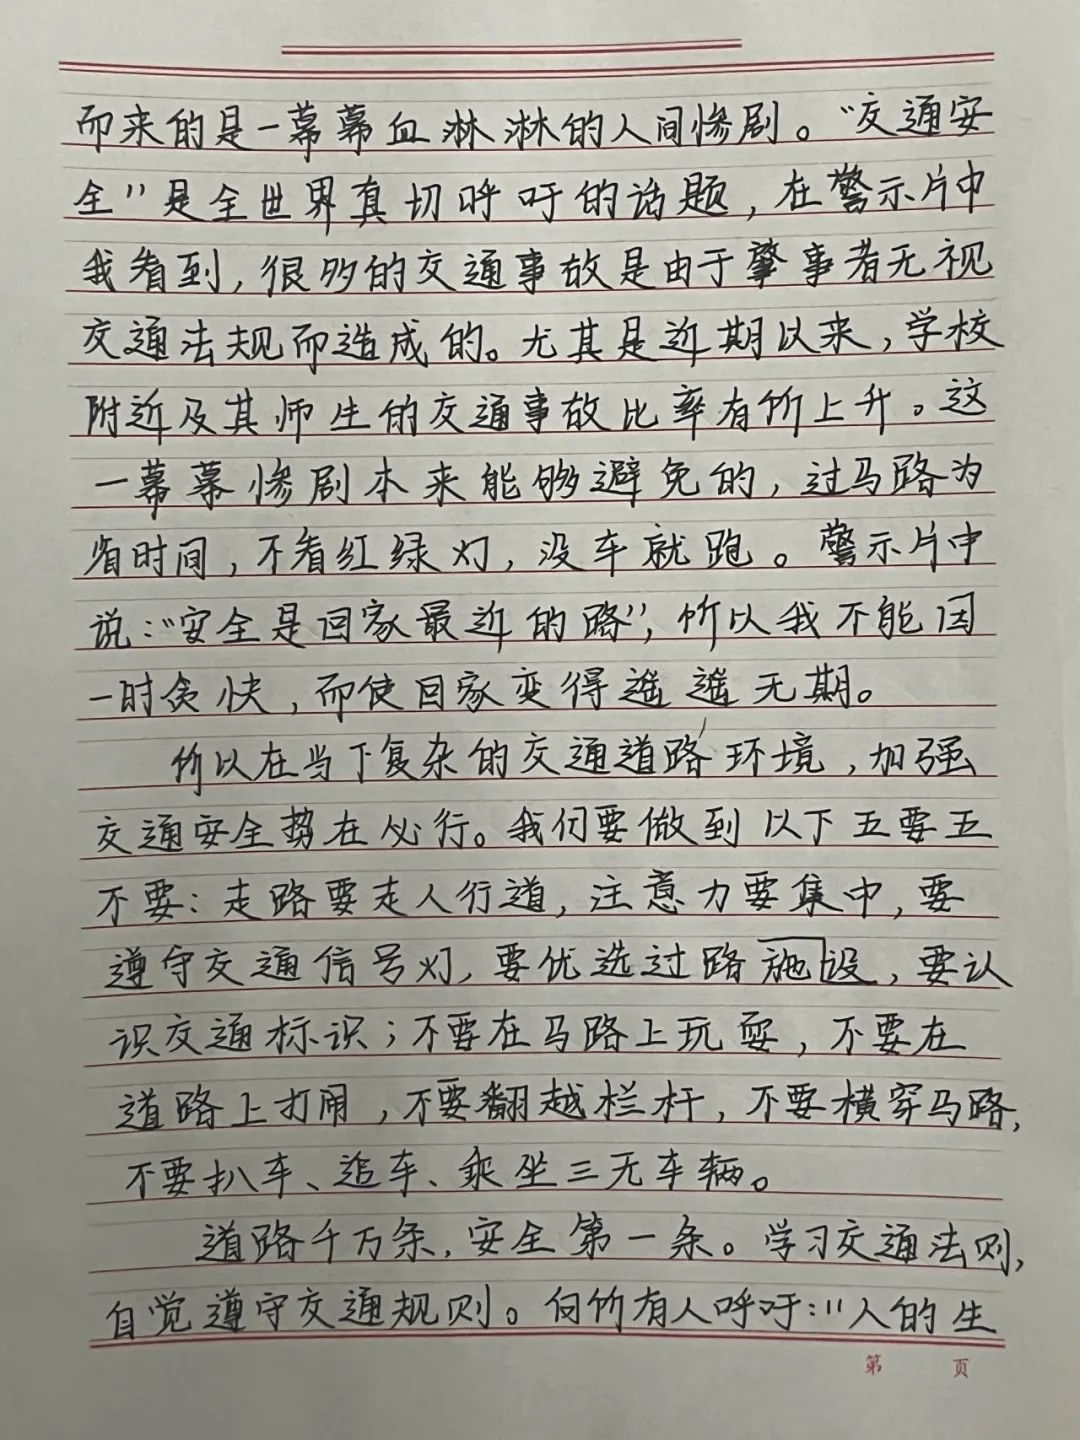 而来的是一幕幕血淋淋的人间惨剧。“交通安
全”是全世界真切呼吁的话题，在警示片中
我看到，很多的交通事故是由于肇事者无视
交通法规而造成的。尤其是近期以来，学校
附近及其师生的交通事故比率有所上升。这
一幕幕惨剧本来能够避免的，过马路为
省时间，不看红绿灯，没车就跑。警示片中
说：“安全是回家最近的路”，所以我不能因
一时贪快，而使回家变得遥遥无期。
所以在当下复杂的交通道路环境，加强
交通安全势在必行。我们要做到以下五要五
不要：走路要走人行道，注意力要集中，要
遵守交通信号灯，要优选过路施设，要认
识交通标识；不要在马路上玩耍，不要在
道路上打闹，不要翻越栏杆，不要横穿马路，
不要扒车、追车、乘坐三无车辆。
道路千万条，安全第一条。学习交通法则，
自觉遵守交通规则。向所有人呼吁：“人的生
第 页